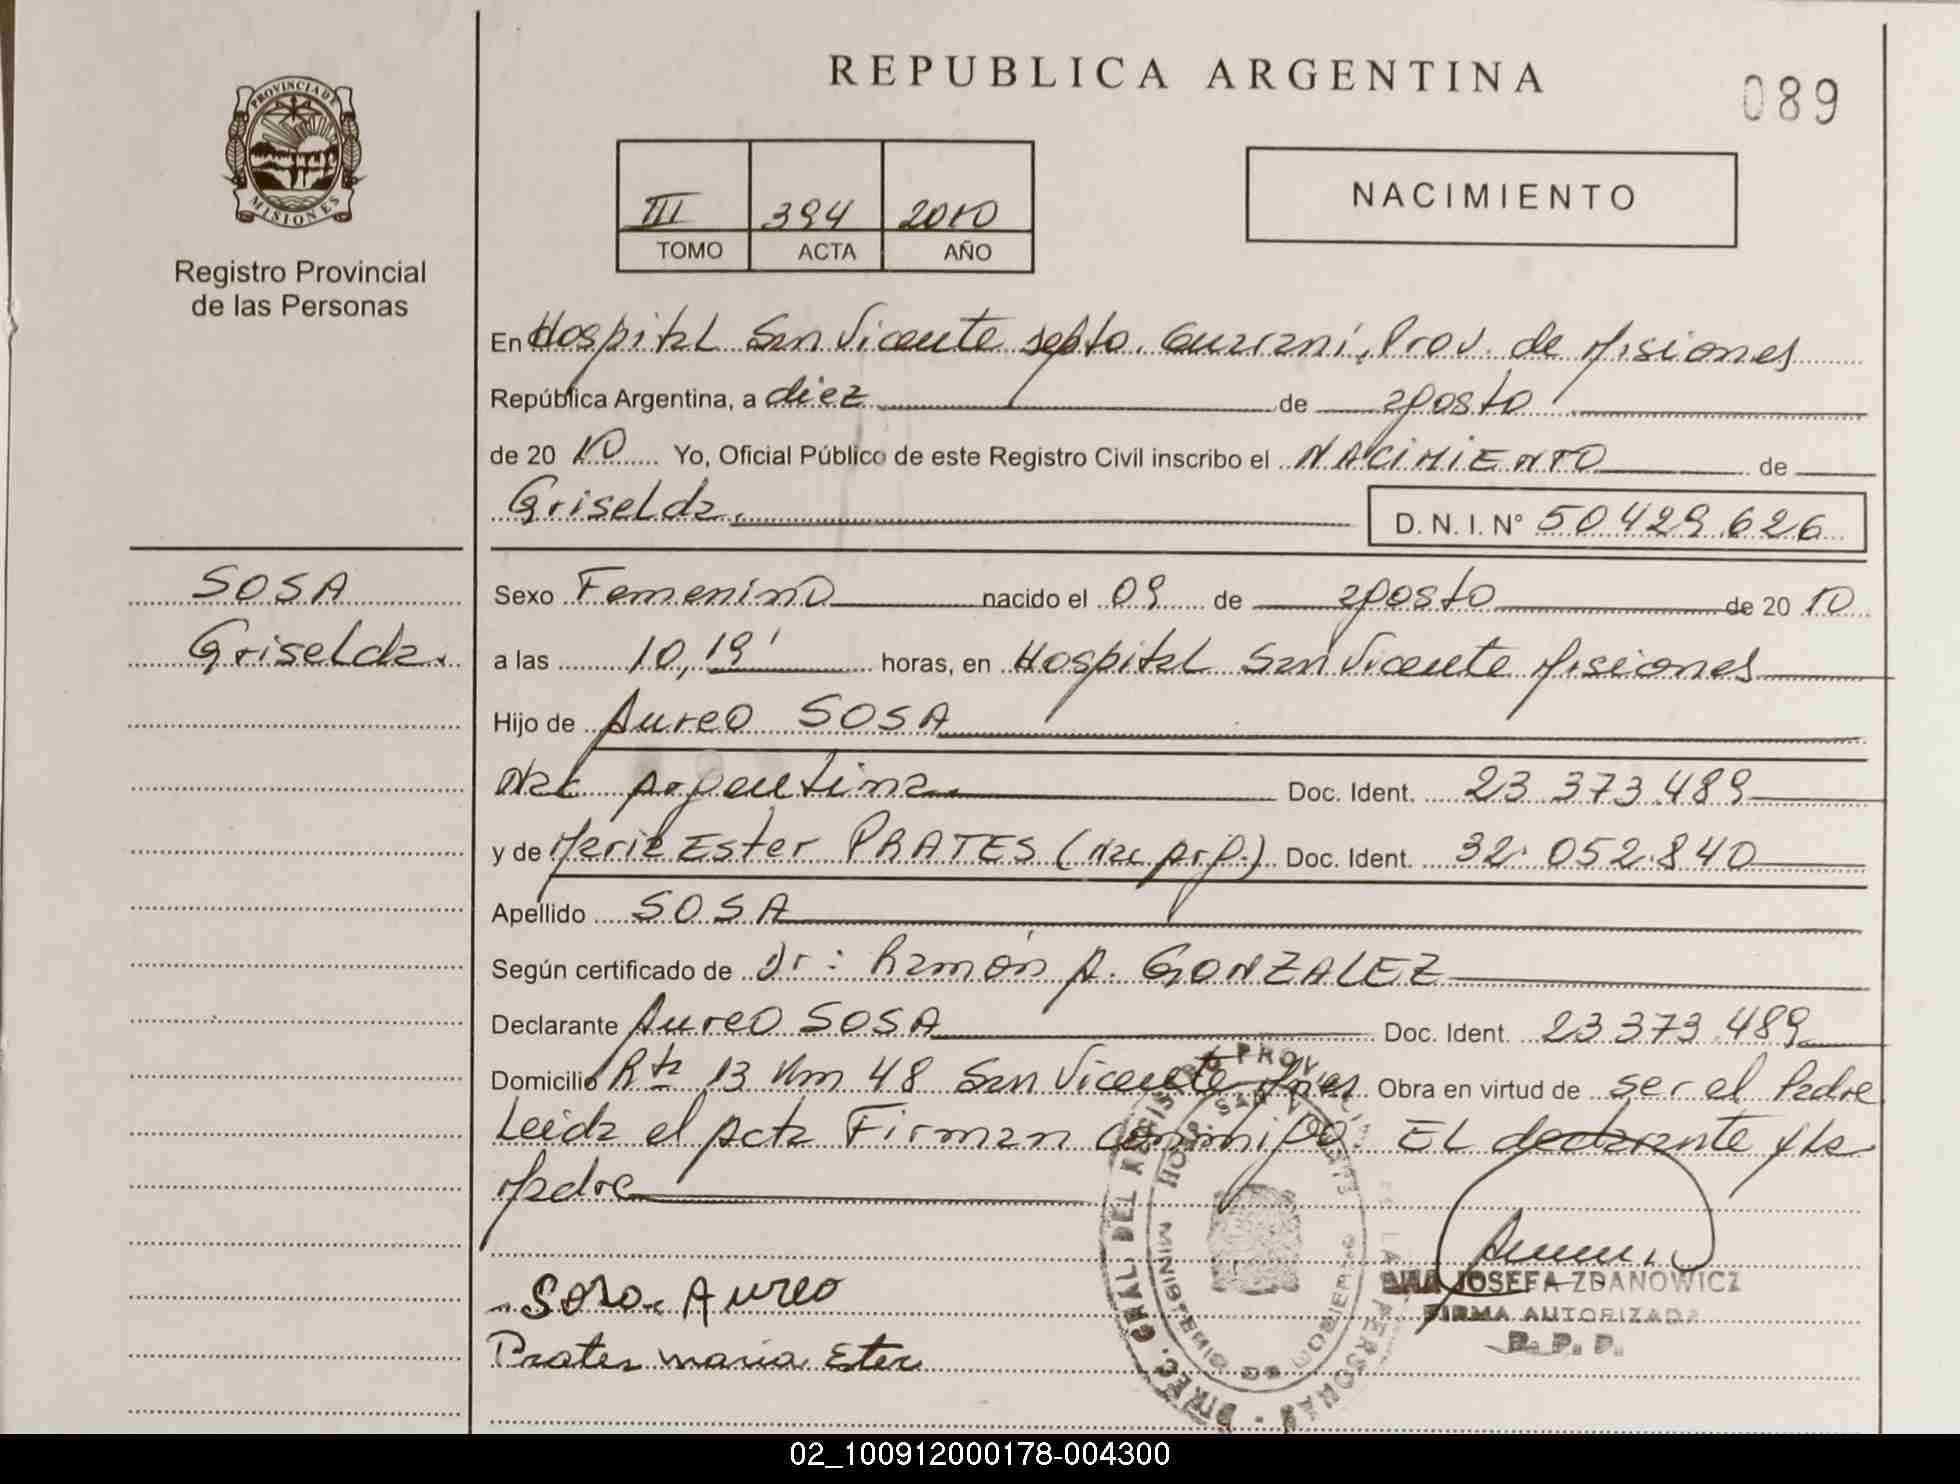 REPUBLICA ARGENTINA
089
PROVINCIA DE
MISIONES
Registro Provincial
de las Personas
III 394 2010
TOMO ACTA AÑO
NACIMIENTO
En Hospital San Vicente Depto. Guarani, Prov. de Misiones
República Argentina, a diez de agosto
de 2010 Yo, Oficial Público de este Registro Civil inscribo el NACIMIENTO de
Griselda.
D. N. I. N° 50.429.626
SOSA
Griselda.
Sexo Femenino nacido el 09 de agosto de 2010
a las 10,19' horas, en Hospital San Vicente Misiones
Hijo de Aureo SOSA
Nac Argentina Doc. Ident. 23 373.489
y de Maria Ester PRATES (Nac Arg.) Doc. Ident. 32.052.840
Apellido SOSA
Según certificado de Dr: Ramón A. GONZALEZ
Declarante Aureo SOSA Doc. Ident. 23 373.489
Domicilio Rta 13 Km 48 San Vicente Mnes Obra en virtud de ser el Padre
Leida el Acta Firman conmigo. EL declarante y la
Madre
Soso Aureo
Prates maria Ester
DIREC. GRAL. DEL REGISTRO PROVINCIAL DE LAS PERSONAS
HOSP. SAN VICENTE
MINISTERIO DE GOBIERNO
ANA JOSEFA ZDANOWICZ
FIRMA AUTORIZADA
R. P. P.
02_100912000178-004300